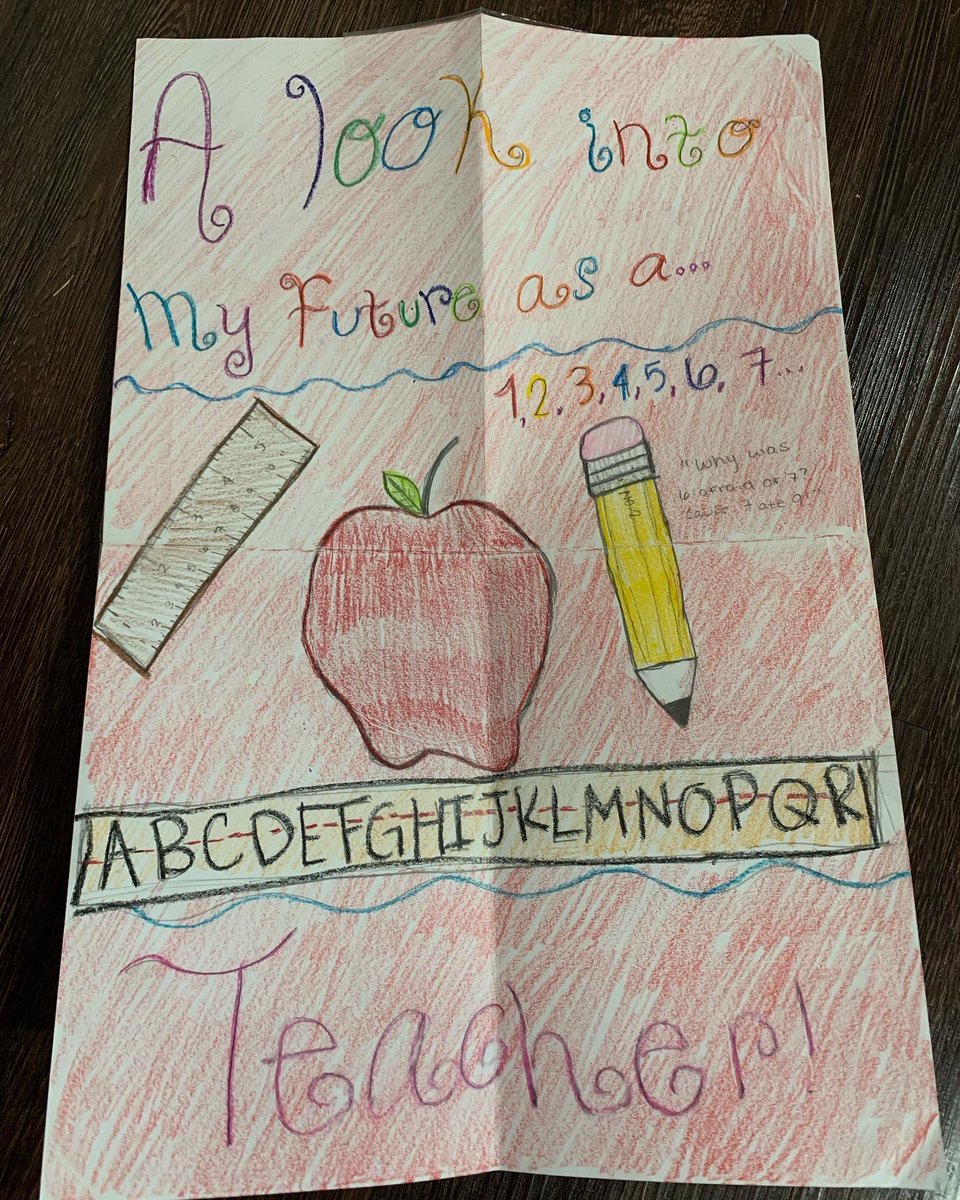 A look into
My Future as a...
1, 2, 3, 4, 5, 6, 7...
"Why was
6 afraid of 7?
'cause 7 ate 9!"
No 2
ABCDEFGHIJKLMNOPQR
Teacher!